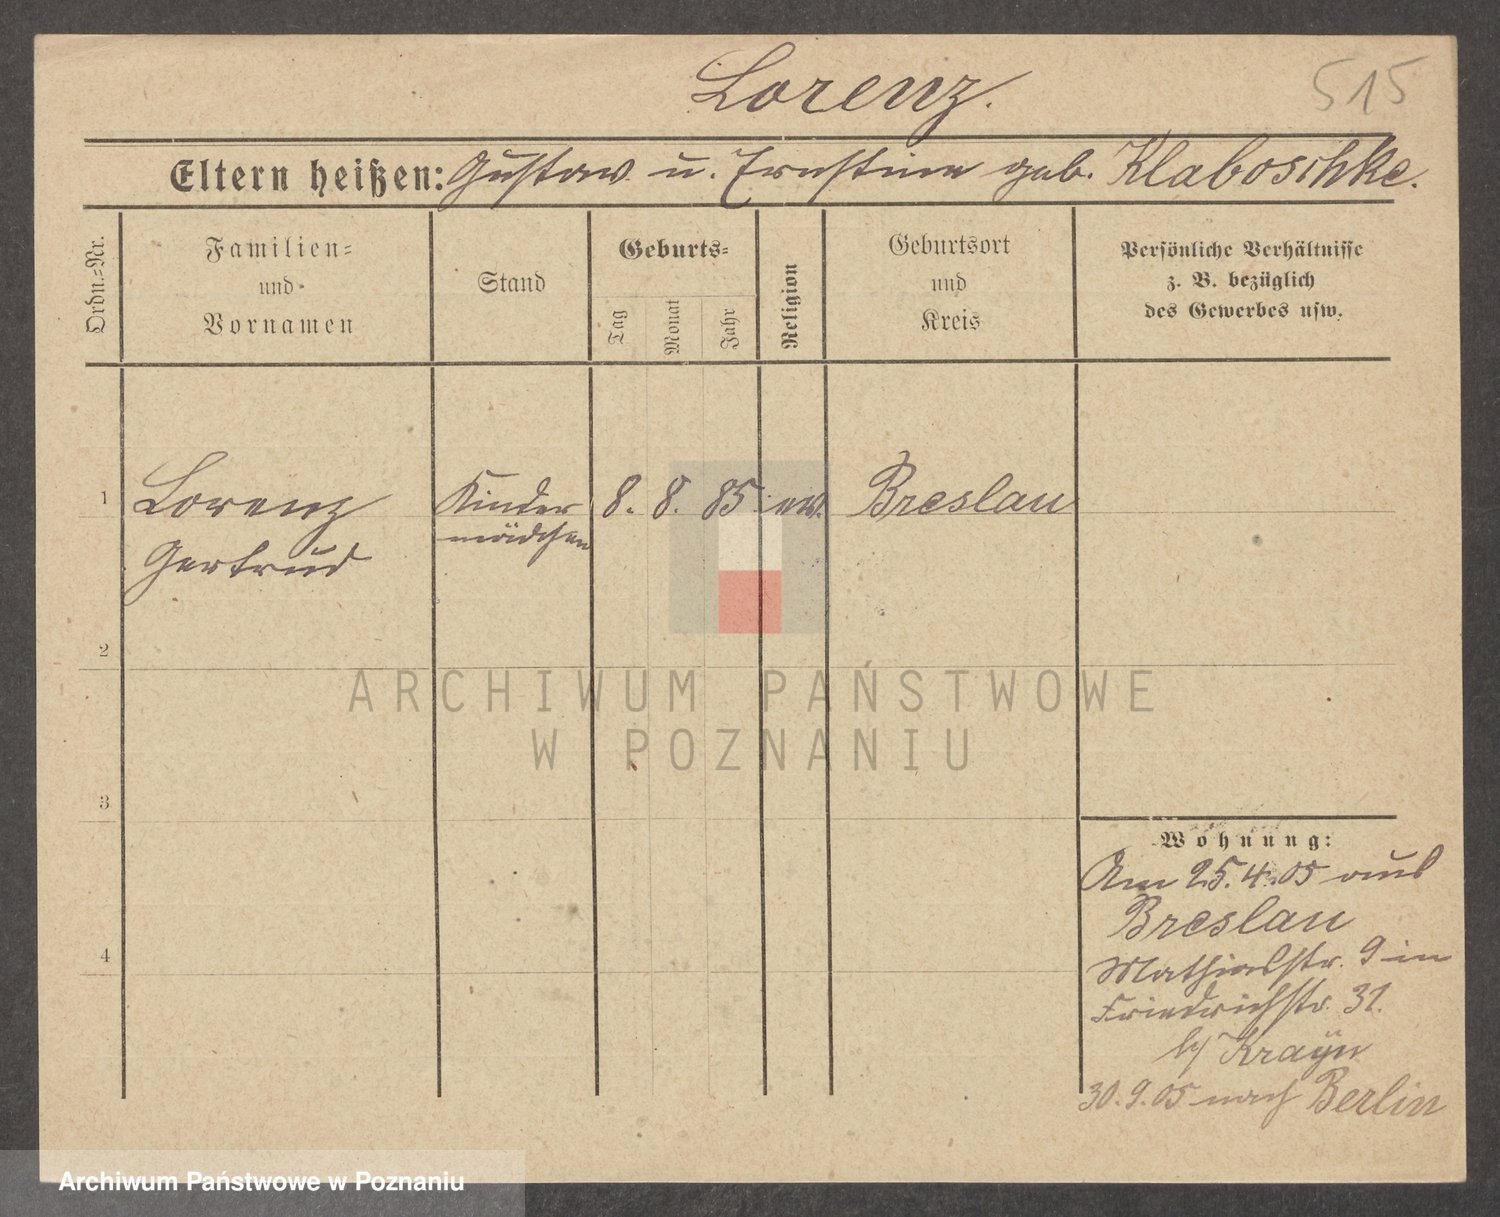 Lorenz.
515
Eltern heißen: Gustav u. Ernstine geb. Klaboschke.
Ordn.=Nr.
Familien=
und
Vornamen
Stand
Geburts=
Tag
Monat
Jahr
Religion
Geburtsort
und
Kreis
Persönliche Verhältnisse
z. B. bezüglich
des Gewerbes usw.
1 Lorenz Kinder 8. 8. 85. ev. Breslau
Gertrud mädchen
2
3
4
Wohnung:
Am 25.4.05 aus
Breslau
Mathiasstr. 9 in
Friedrichstr. 31.
b/ Krayn
30.9.05 nach Berlin
ARCHIWUM PAŃSTWOWE
W POZNANIU
Archiwum Państwowe w Poznaniu